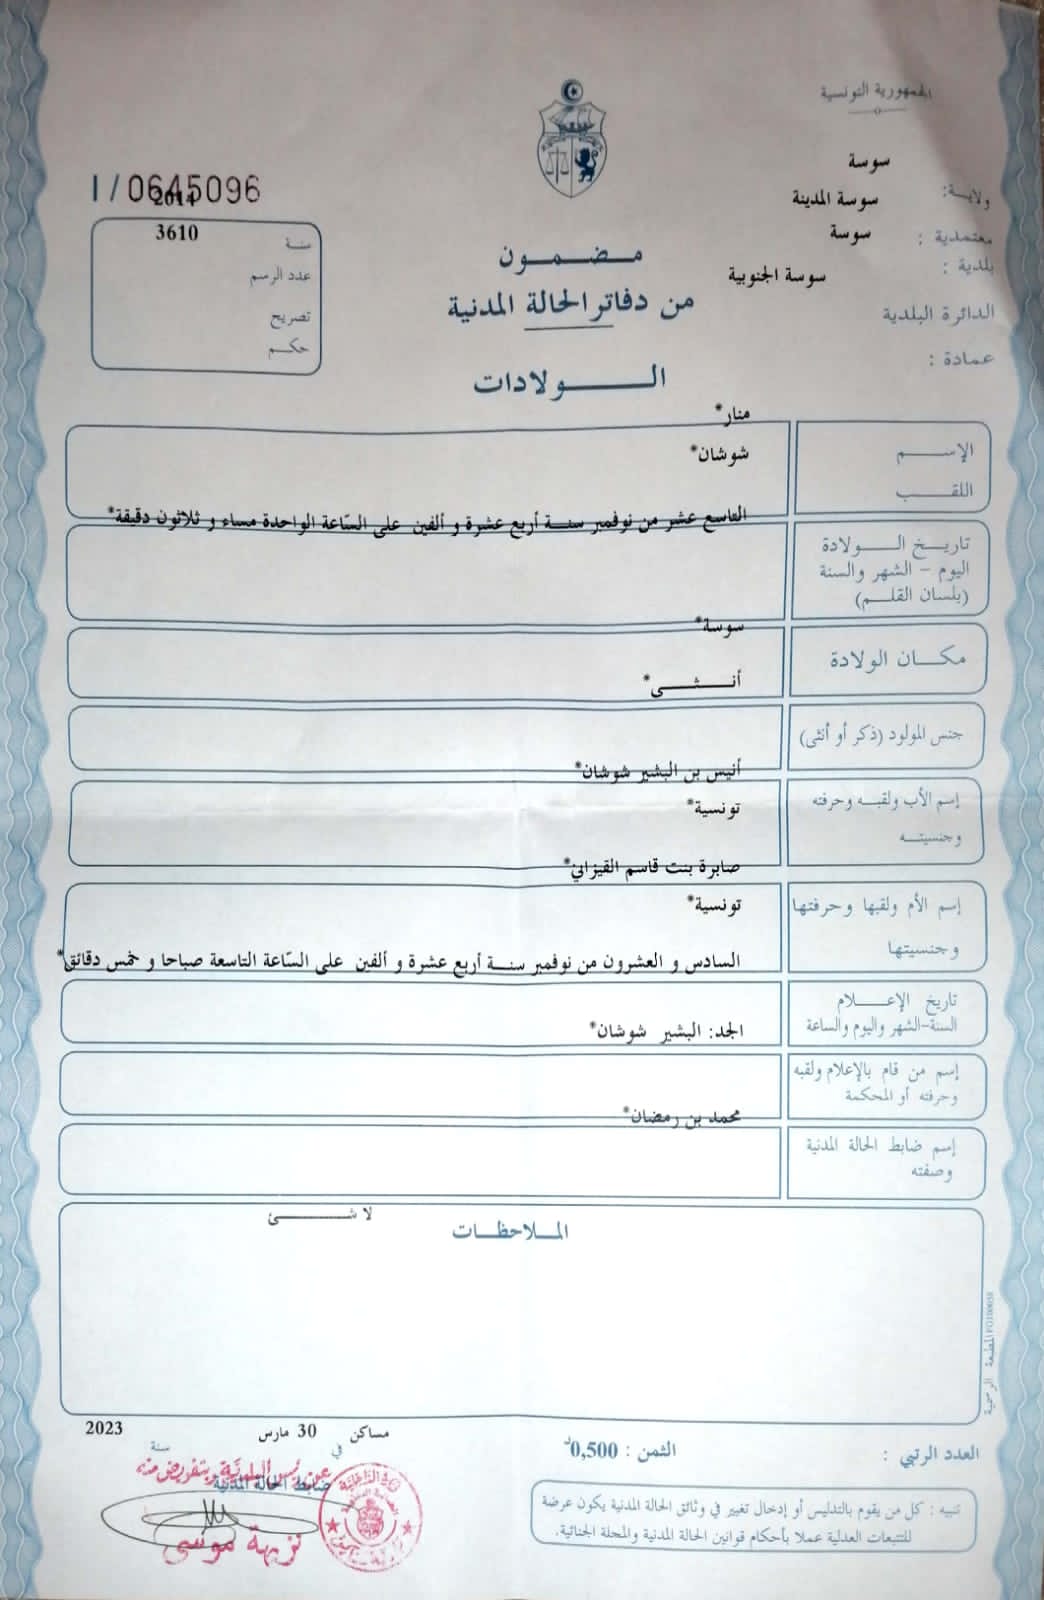 الجمهورية التونسية
سوسة
ولاية:
سوسة المدينة
معتمدية :
سوسة
بلدية :
سوسة الجنوبية
الدائرة البلدية
عمادة :
I/0645096
2014
3610
سنة
عدد الرسم
تصريح
حكم
مضمون
من دفاتر الحالة المدنية
الولادات
منار*
الإسم
شوشان*
اللقب
التاسع عشر من نوفمبر سنة أربع عشرة و ألفين على السّاعة الواحدة مساء و ثلاثون دقيقة*
تاريخ الولادة
اليوم - الشهر والسنة
(بلسان القلم)
سوسة*
مكان الولادة
أنثى*
جنس المولود (ذكر أو أنثى)
أنيس بن البشير شوشان*
إسم الأب ولقبه وحرفته
تونسية*
وجنسيته
صابرة بنت قاسم القيزاني*
إسم الأم ولقبها وحرفتها
تونسية*
وجنسيتها
السادس و العشرون من نوفمبر سنة أربع عشرة و ألفين على السّاعة التاسعة صباحا و خمس دقائق*
تاريخ الإعلام
السنة-الشهر واليوم والساعة
الجد: البشير شوشان*
إسم من قام بالإعلام ولقبه
وحرفته أو المحكمة
محمد بن رمضان*
إسم ضابط الحالة المدنية
وصفته
لا شئ
الملاحظات
المطبعة الرسمية
مساكن 30 مارس 2023
في سنة
العدد الرتبي :
الثمن : 0,500د
عن رئيس البلدية وبتفويض منه
ضابط الحالة المدنية
نزيهة موسى
تنبيه : كل من يقوم بالتدليس أو إدخال تغيير في وثائق الحالة المدنية يكون عرضة
للتتبعات العدلية عملا بأحكام قوانين الحالة المدنية والمجلة الجنائية.